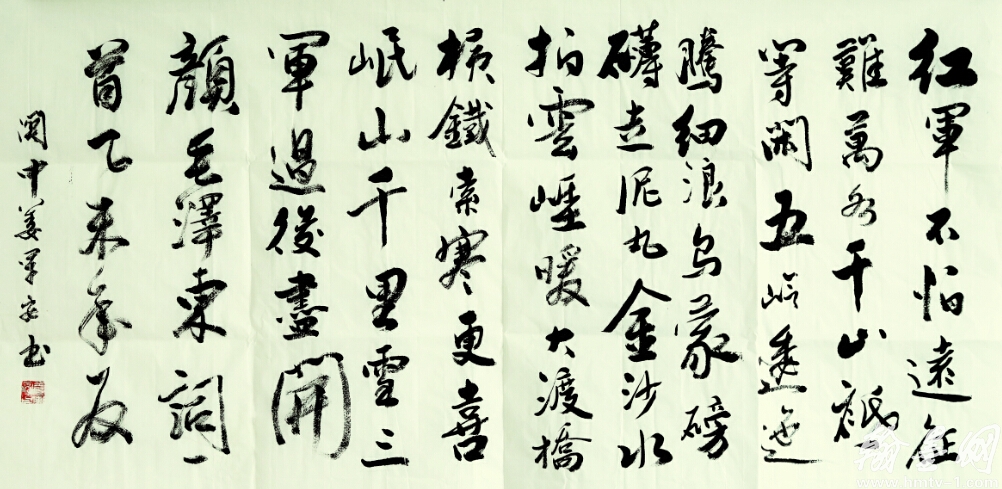 紅軍不怕遠征
難萬水千山祇
等閑五嶺逶迤
騰細浪烏蒙磅
礴走泥丸金沙水
拍雲崖暖大渡橋
橫鐵索寒更喜
岷山千里雪三
軍過後盡開
顏毛澤東詞一
首乙未年夏
関中姜軍安书